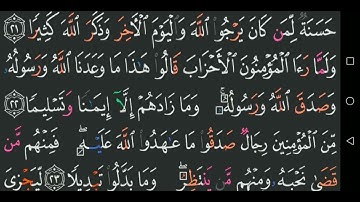 حَسَنَةٌ لِّمَن كَانَ يَرْجُوا۟ ٱللَّهَ وَٱلْيَوْمَ ٱلْـَٔاخِرَ وَذَكَرَ ٱللَّهَ كَثِيرًا ٢١
وَلَمَّا رَءَا ٱلْمُؤْمِنُونَ ٱلْأَحْزَابَ قَالُوا۟ هَٰذَا مَا وَعَدَنَا ٱللَّهُ وَرَسُولُهُۥ
وَصَدَقَ ٱللَّهُ وَرَسُولُهُۥ ۚ وَمَا زَادَهُمْ إِلَّآ إِيمَٰنًا وَتَسْلِيمًا ٢٢
مِّنَ ٱلْمُؤْمِنِينَ رِجَالٌ صَدَقُوا۟ مَا عَٰهَدُوا۟ ٱللَّهَ عَلَيْهِ ۖ فَمِنْهُم مَّن
قَضَىٰ نَحْبَهُۥ وَمِنْهُم مَّن يَنتَظِرُ ۖ وَمَا بَدَّلُوا۟ تَبْدِيلًا ٢٣ لِّيَجْزِىَ